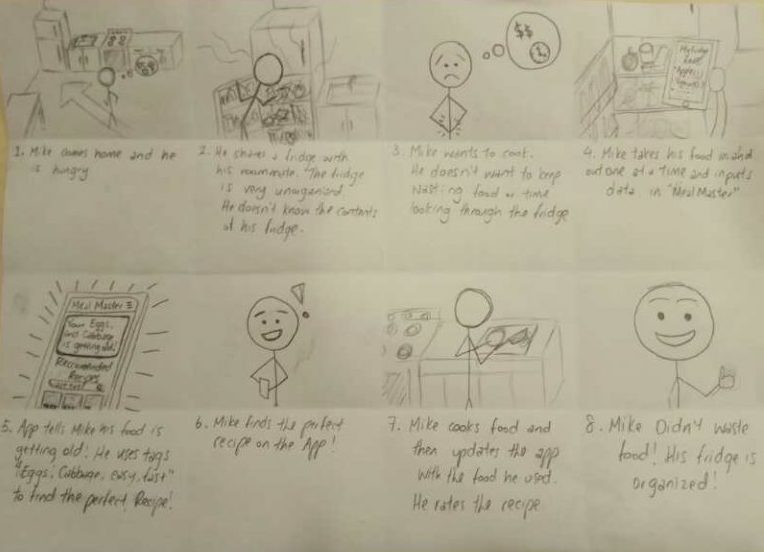 $$
My Fridge
1. Mike comes home and he
is hungry
2. He shares a fridge with
his roommate. The fridge
is very unorganized.
He doesn't know the contents
of his fridge.
3. Mike wants to cook.
He doesn't want to keep
wasting food or time
looking through the fridge
4. Mike takes his food in and
out one at a time and inputs
data in "Meal Master"
Meal Master
Your Eggs,
and Cabbage
is getting old!
Recommended
Recipes
5. App tells Mike his food is
getting old! He uses tags
"Eggs, Cabbage, easy, fast"
to find the perfect Recipe!
!
6. Mike finds the perfect
recipe on the App!
7. Mike cooks food and
then updates the app
with the food he used.
He rates the recipe
8. Mike Didn't waste
food! His fridge is
organized!